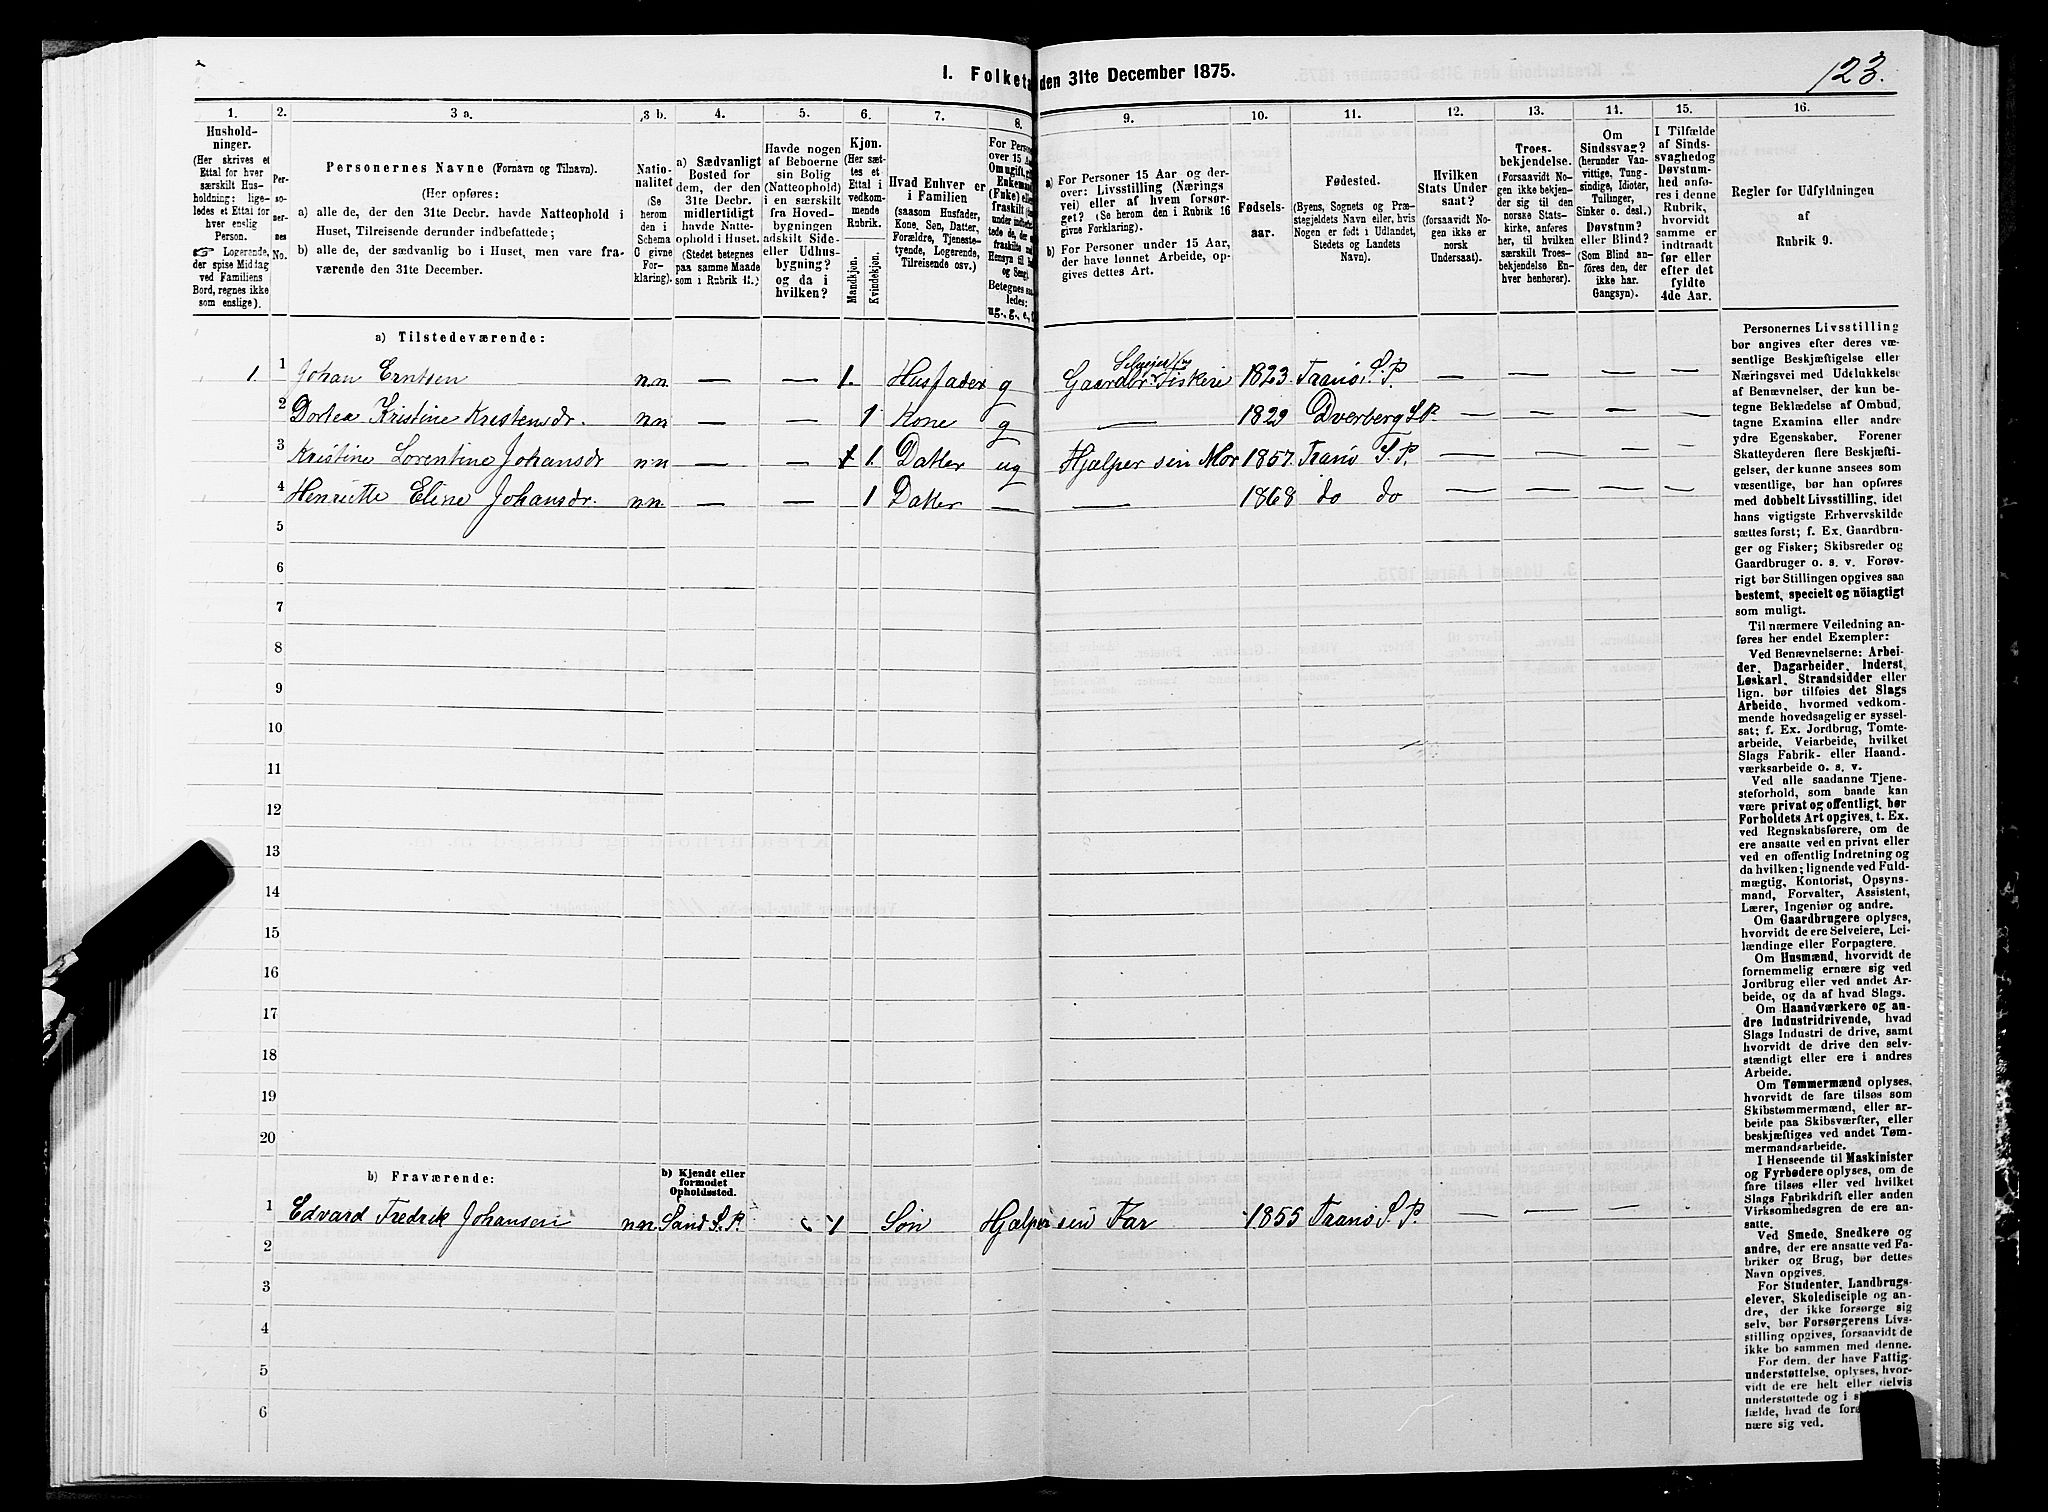 I. Folketæ
den 31te December 1875.
123.
1.
2.
3 a.
3 b.
4.
5.
6.
7.
8.
9.
10.
11.
12.
13.
14.
15.
16.
Hushold-
ninger.
(Her skrives et
Ettal for hver
særskilt Hus-
holdning; lige-
ledes et Ettal for
hver enslig
Person.
☞ Logerende,
der spise Middag
ved Familiens
Bord, regnes ikke
som enslige).
Per-
so-
ner-
nes
No.
Personernes Navne (Fornavn og Tilnavn).
(Her opføres:
a) alle de, der den 31te Decbr. havde Natteophold i
Huset, Tilreisende derunder indbefattede;
b) alle de, der sædvanlig bo i Huset, men vare fra-
værende den 31te December.
Natio-
nalitet
(Se
herom
den i
Schema
C givne
For-
klaring).
a) Sædvanligt
Bosted for
dem, der den
31te Decbr.
midlertidigt
havde Natte-
ophold i Huset.
(Stedet betegnes
paa samme Maade
som i Rubrik 11.)
Havde nogen
af Beboerne
sin Bolig
(Natteophold)
i en særskilt
fra Hoved-
bygningen
adskilt Side-
eller Udhus-
bygning?
og da i
hvilken?
Kjøn.
(Her sæt-
tes et
Ettal i
vedkom-
mende
Rubrik.
Mandkjøn.
Kvindekjøn.
Hvad Enhver er
i Familien
(saasom Husfader,
Kone, Søn, Datter,
Forældre, Tjeneste-
tyende, Logerende,
Tilreisende osv.)
For Person
over 15 Aar
Om ugift, gi
Enkemand
(Enke) elle
fraskilt
Betegnes saa
ledes:
ug., g., e.,
a) For Personer 15 Aar og der-
over: Livsstilling (Nærings
vei) eller af hvem forsør-
get? (Se herom den i Rubrik 16
givne Forklaring).
b) For Personer under 15 Aar,
der have lønnet Arbeide, op-
gives dettes Art.
Fødsels-
aar.
Fødested.
(Byens, Sognets og Præ-
stegjeldets Navn eller, hvis
Nogen er født i Udlandet,
Stedets og Landets
Navn).
Hvilken
Stats Under
saat?
(forsaavidt No-
gen ikke er
norsk
Undersaat).
Troes-
bekjendelse.
(Forsaavidt No-
gen ikke bekjen-
der sig til den
norske Stats-
kirke, anføres
her, til hvilken
særskilt Troes-
bekjendelse En-
hver henhører).
Om
Sindssvag?
(herunder Van-
vittige, Tung-
sindige, Idioter,
Tullinger,
Sinker o. desl.)
Døvstum?
eller Blind?
(Som Blind an-
føres den, der
ikke har.
Gangsyn).
I Tilfælde
af Sinds-
svaghedog
Døvstum-
hed anfø-
res i denne
Rubrik,
hvorvidt
samme er
indtraadt
før eller
efter det
fyldte
4de Aar.
Regler for Udfyldningen
af
Rubrik 9.
a) Tilstedeværende:
1. 1 Johan Erntsen n.n — — 1. Husfader g Gaardbr Selveier Fisker 1823. Tranø S. P. — — — —
2 Dortea Kristine Kristensdr. n.n — — 1 Kone g — 1829 Dverberg S.P. — — — —
3 Kristine Lorentine Johansdr n.n — — 1. Datter ug Hjælper sin Mor 1857. Tranø S. P. — — — —
4 Henriette Eline Johansdr. n.n. — — 1 Datter — — 1868 do do — — — —
5
6
7
8
9
10
11
12
13
14
15
16
17
18
19
20
b) Fraværende:
b) Kjendt eller
formodet
Opholdssted.
1 Edvard Fredrik Johansen n.n. Sand S. P. 1 Søn Hjælper sin Far 1855 Tranø S. P. — — — —
2
3
4
5
6
Personernes Livsstilling
bør angives efter deres væ-
sentlige Beskjæftigelse eller
Næringsvei med Udelukkelse
af Benævnelser, der kun be-
tegne Beklædelse af Ombud,
tagne Examina eller andre
ydre Egenskaber. Forener
Skatteyderen flere Beskjæfti-
gelser, der kunne ansees som
væsentlige, bør han opføres
med dobbelt Livsstilling, idet
hans vigtigste Erhvervskilde
sættes først; f. Ex. Gaardbru-
ger og Fisker; Skibsreder og
Gaardbruger o. s. v. Forøv-
rigt bør Stillingen opgives saa
bestemt, specielt og nöiagtigt
som muligt.
Til nærmere Veiledning an-
føres her endel Exempler:
Ved Benævnelserne: Arbei-
der, Dagarbeider, Inderst,
Løskarl, Strandsidder eller
lign. bør tilføies det Slags
Arbeide, hvormed vedkom-
mende hovedsagelig er syssel-
sat; f. Ex. Jordbrug, Tomte-
arbeide, Veiarbeide, hvilket
Slags Fabrik- eller Haand-
værksarbeide o. s. v.
Ved alle saadanne Tjene-
steforhold, som baade kan
være privat og offentligt, bør
Forholdets Art opgives, t. Ex.
ved Regnskabsførere, om de
ere ansatte ved en privat eller
ved en offentlig Indretning og
da hvilken; lignende ved Fuld-
mægtig, Kontorist, Opsyns-
mand, Forvalter, Assistent,
Lærer, Ingeniør og andre.
Om Gaardbrugere oplyses,
hvorvidt de ere Selveiere, Lei-
lændinge eller Forpagtere.
Om Husmænd, hvorvidt de
fornemmelig ernære sig ved
Jordbrug eller ved andet Ar-
beide, og da af hvad Slags.
Om Haandværkere og an-
dre Industridrivende, hvad
Slags Industri de drive, samt
hvorvidt de drive den selv-
stændigt eller ere i andres
Arbeide.
Om Tømmermænd oplyses,
hvorvidt de fare tilsøs som
Skibstømmermænd, eller ar-
beide paa Skibsværfter, eller
beskjæftiges ved andet Tøm-
mermandsarbeide.
I Henseende til Maskinister
og Fyrbødere oplyses, om de
fare tilsøs eller ved hvilket
Slags Fabrikdrift eller anden
Virksomhedsgren de ere an-
satte.
Ved Smede, Snedkere og
andre, der ere ansatte ved Fa-
briker og Brug, bør dettes
Navn opgives.
For Studenter, Landbrugs-
elever, Skoledisciple og an-
dre, der ikke forsørge sig
selv, bør Forsørgerens Livs-
stilling opgives, forsaavidt de
ikke bo sammen med denne.
For dem, der have Fattig-
understøttelse, oplyses, hvor-
vidt de ere helt eller delvis
understøttede og i s
fælde, hvad de for
nære sig ved.